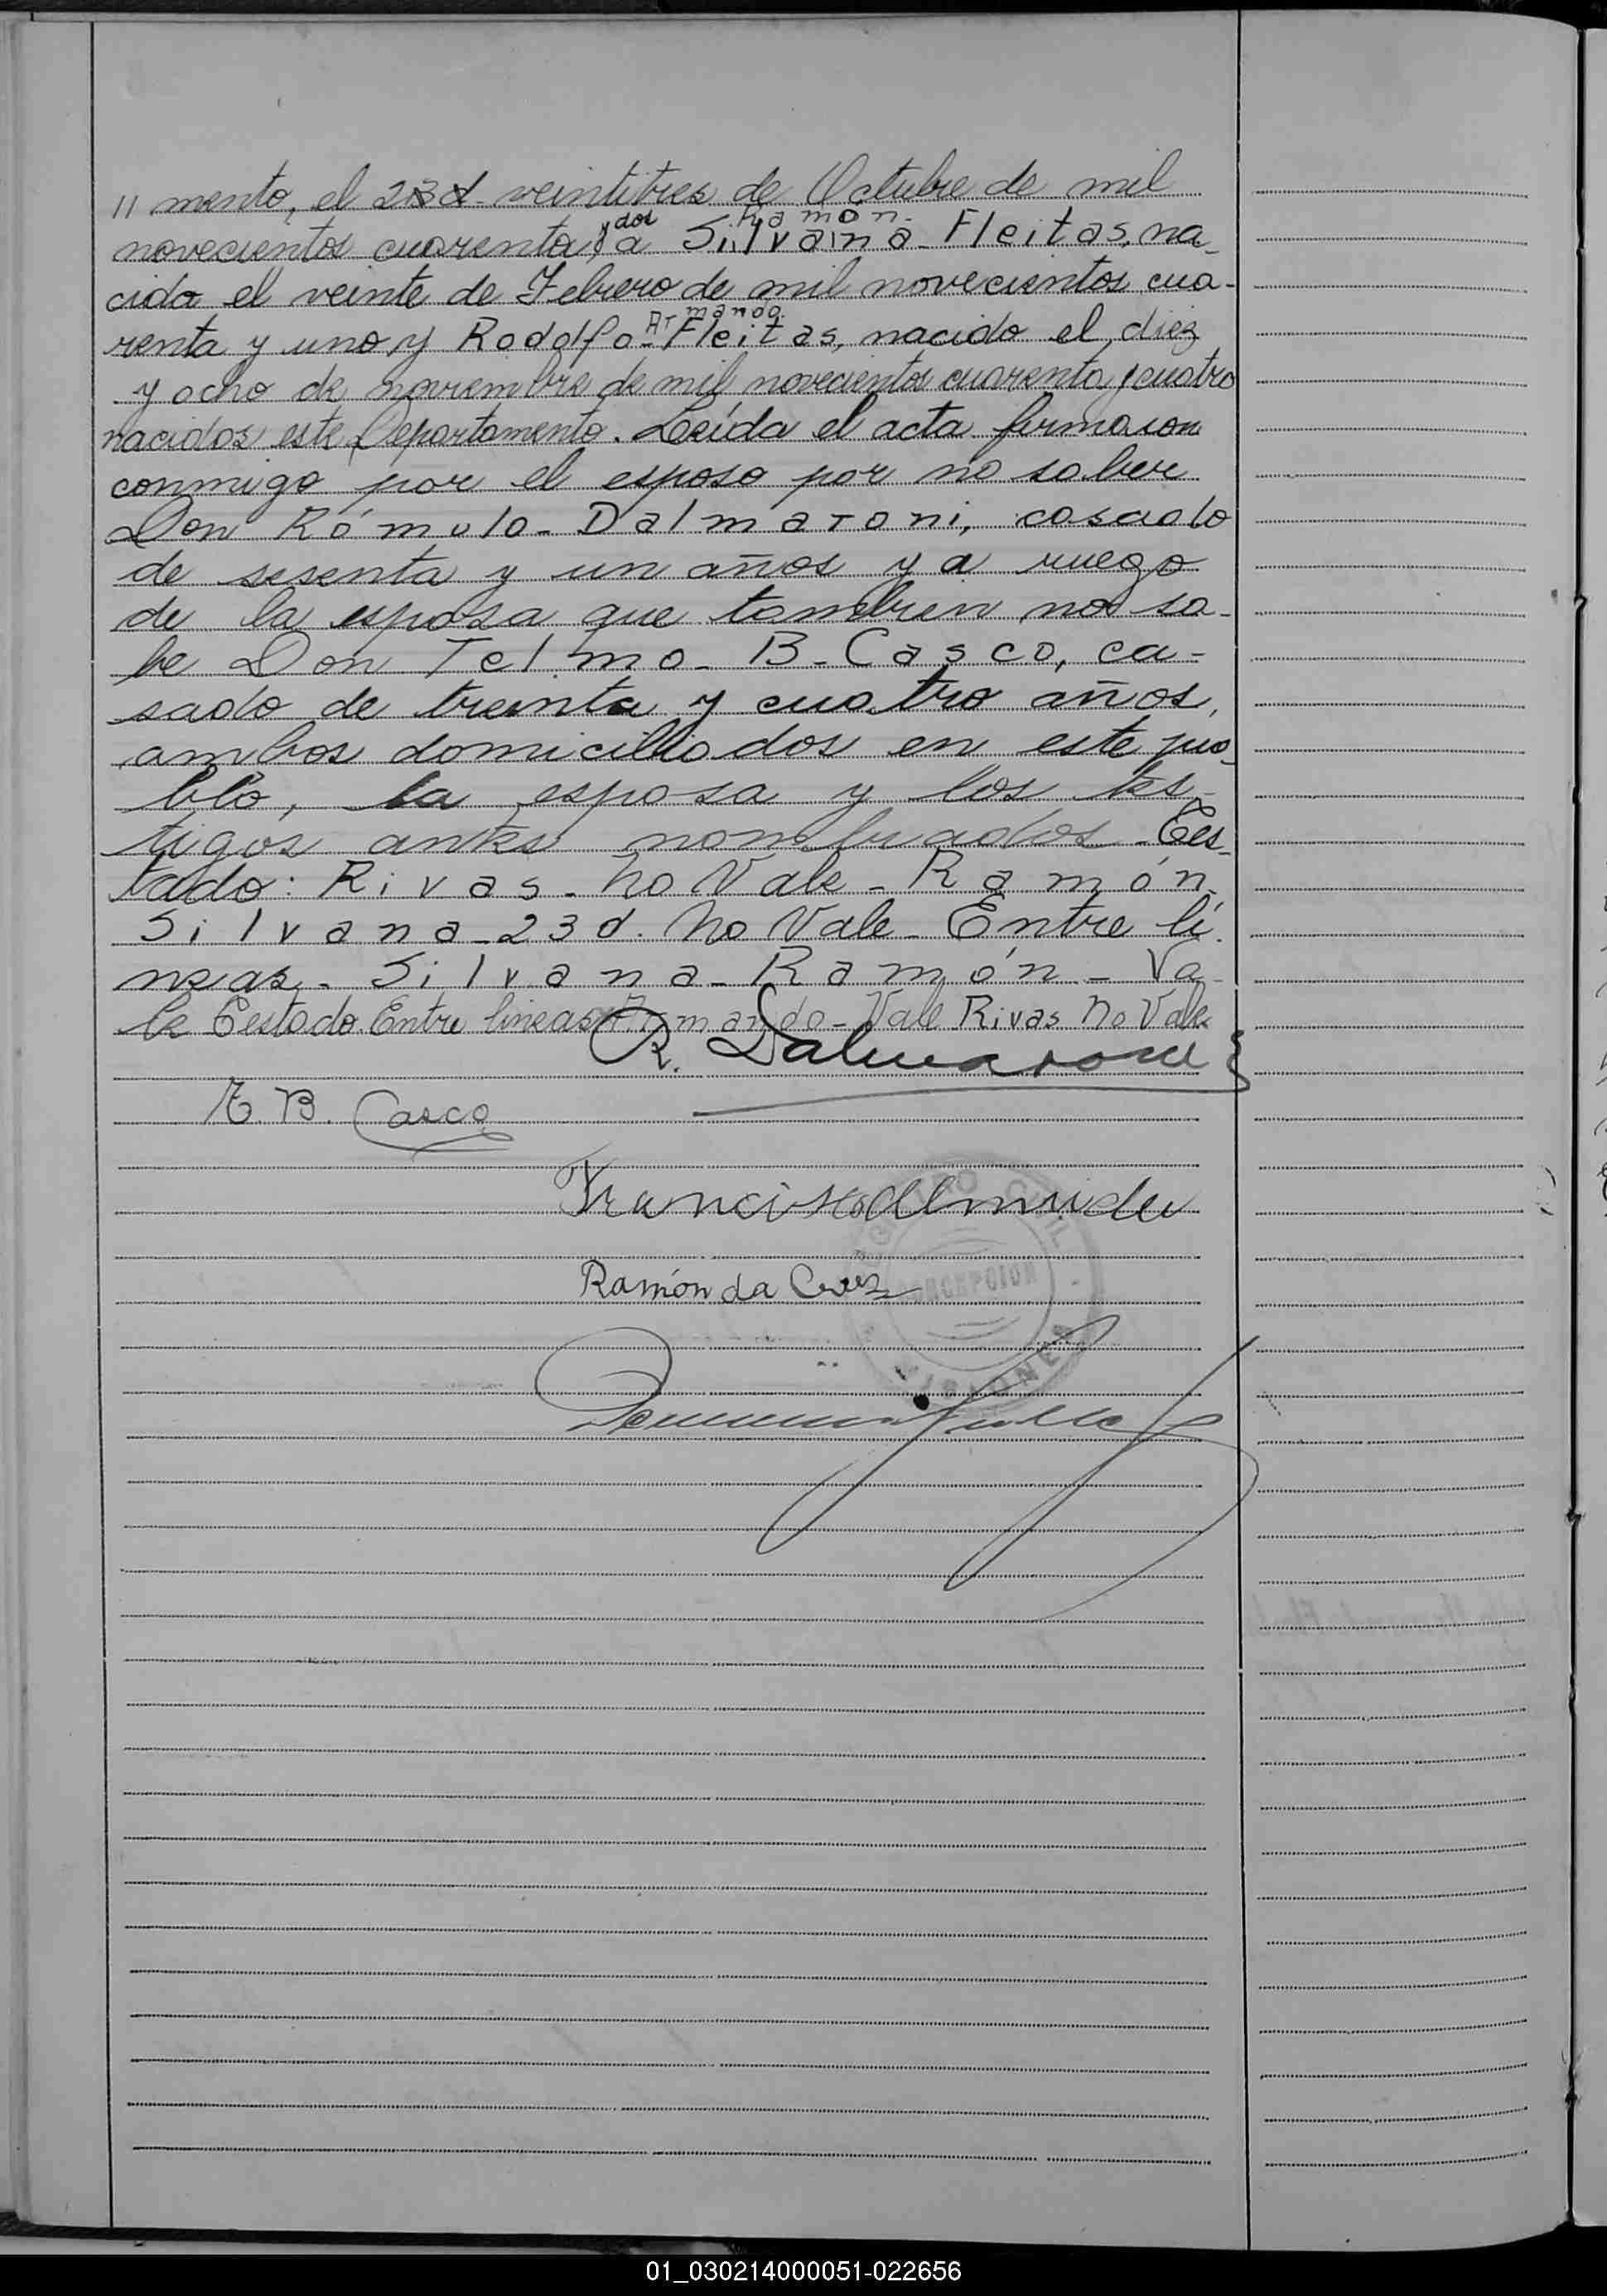 // mento, el 23d. veintitres de Octubre de mil
y dos Ramón.
novecientos cuarenta, a Silvana Fleitas, na-
cida el veinte de Febrero de mil novecientos cua-
Armando
renta y uno y Rodolfo - Fleitas, nacido el diez
y ocho de noviembre de mil novecientos cuarenta y cuatro
nacidos este Departamento. Leída el acta firmaron
conmigo por el esposo por no saber
Don Rómulo - Dalmaroni, casado
de sesenta y un años y a ruego
de la esposa que tambien no sa-
be Don Telmo - B - Casco, ca-
sado de treinta y cuatro años,
ambos domiciliados en este pue-
blo, la esposa y los tes-
tigos antes nombrados - Tes-
tado: Rivas - No Vale - Ramón
Silvana - 23d. No Vale - Entre lí-
neas - Silvana - Ramón - Va-
le Testado. Entre lineas Armando - Vale Rivas No Vale
R. Dalmaroni
T. B. Casco
Francisco Almeida
Ramón da Cruz
REGISTRO CIVIL
CONCEPCION
MISIONES
01_030214000051-022656